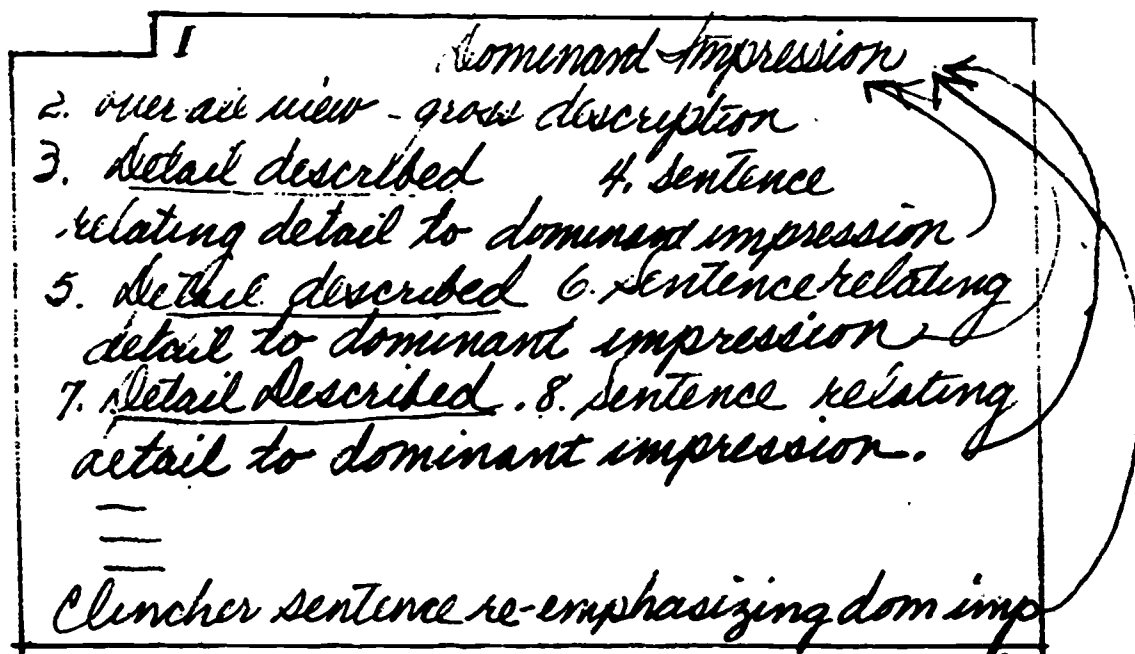 1 Dominant Impression
2. over all view - gross description
3. Detail described 4. Sentence
relating detail to dominant impression
5. Detail described 6. Sentence relating
detail to dominant impression
7. Detail Described. 8. Sentence relating
detail to dominant impression.
Clincher sentence re-emphasizing dom imp